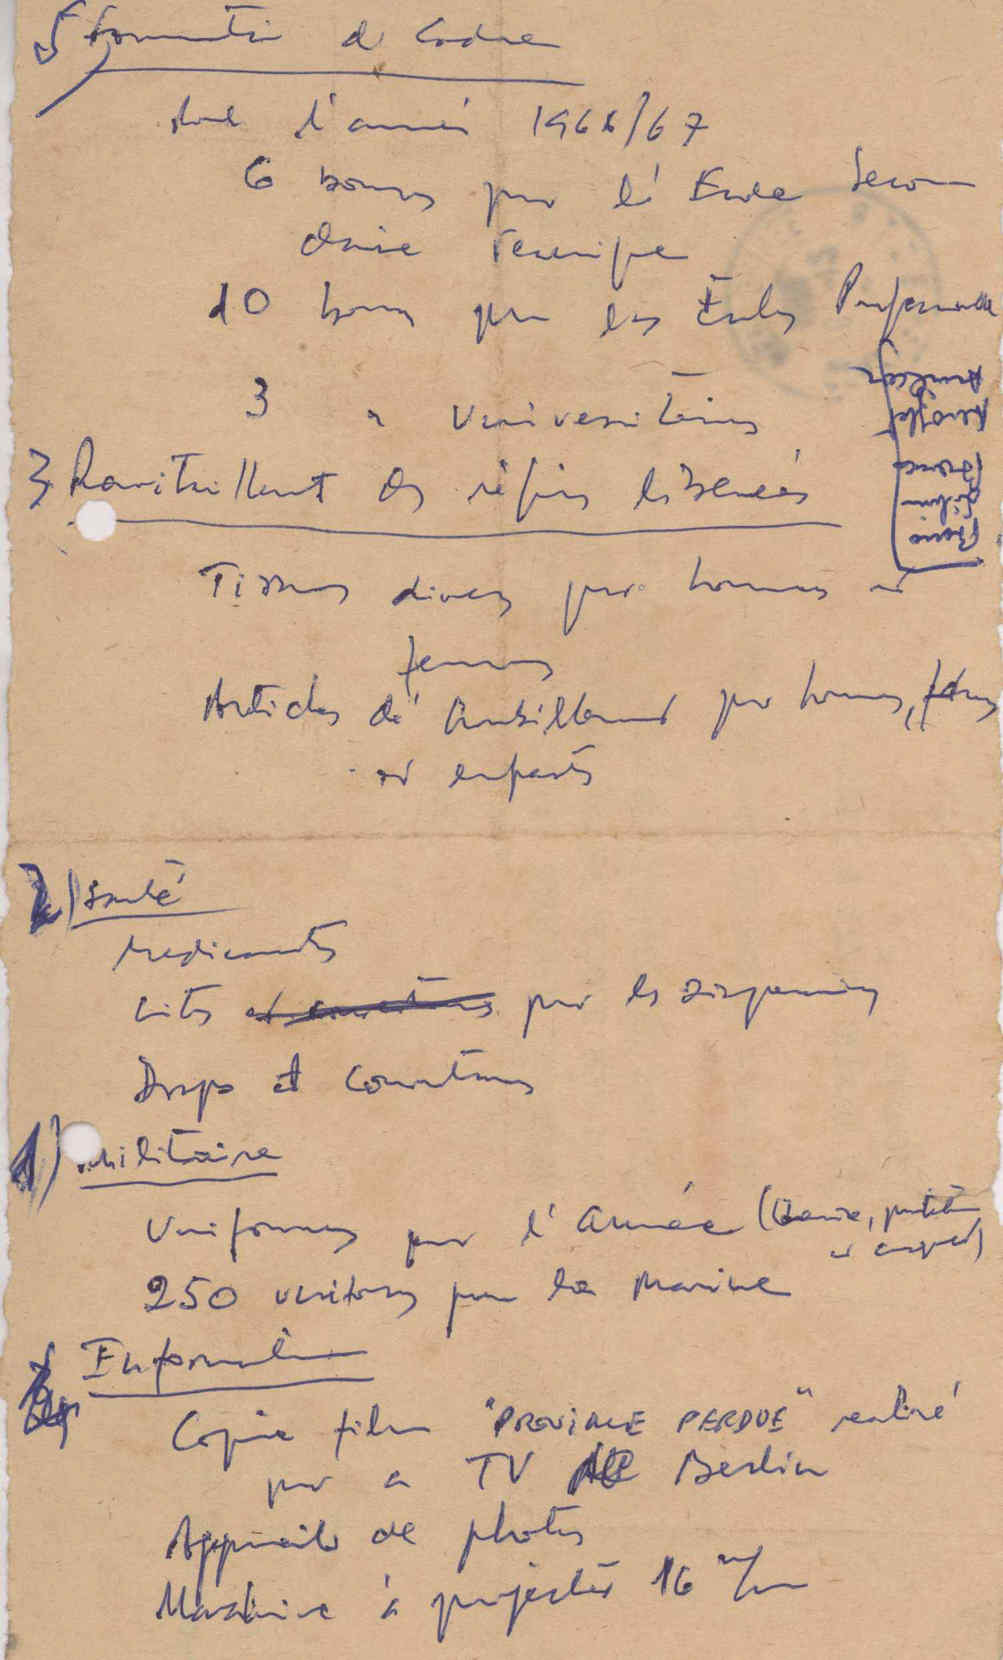 5) Formation de Cadre
l'année 1966/67
6 bourses pour l'École Secon
daire
10 bourses pour les Écoles Professionnelle
3 " Universitaires
3 Ravitaillement des régions libérées
Tissus divers pour hommes et
femmes
Articles d'habillement pour hommes, femmes
et enfants
2) Santé
Medicaments
Lits et couvertures pour les dispensaires
Draps et Couvertures
1) Militaire
Uniformes pour l'Armée
250 pour la Marine
Information
Copie film "PROVINCE PERDUE" realisé
par la TV Berlin
Appareils de photos
Machine à projecter 16 m/m